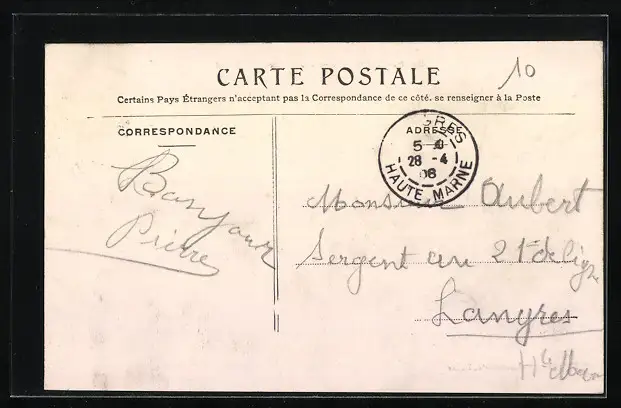 CARTE POSTALE
10
Certains Pays Étrangers n'acceptant pas la Correspondance de ce côté, se renseigner à la Poste
CORRESPONDANCE
ADRESSE
GRES
28 -4
06
HAUTE MARNE
Bonjour
Pierre
Monsieur Aubert
Sergent au 21e de ligne
Langres
Hte Marne